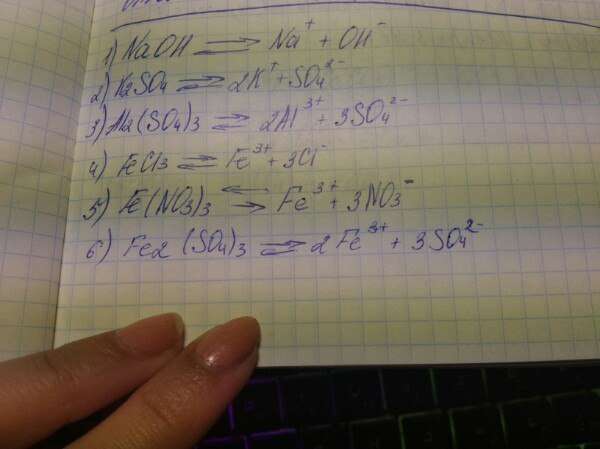 1) NaOH ⇌ Na⁺ + OH⁻
2) K₂SO₄ ⇌ 2K⁺ + SO₄²⁻
3) Al₂(SO₄)₃ ⇌ 2Al³⁺ + 3SO₄²⁻
4) FeCl₃ ⇌ Fe³⁺ + 3Cl⁻
5) Fe(NO₃)₃ ⇌ Fe³⁺ + 3NO₃⁻
6) Fe₂(SO₄)₃ ⇌ 2Fe³⁺ + 3SO₄²⁻